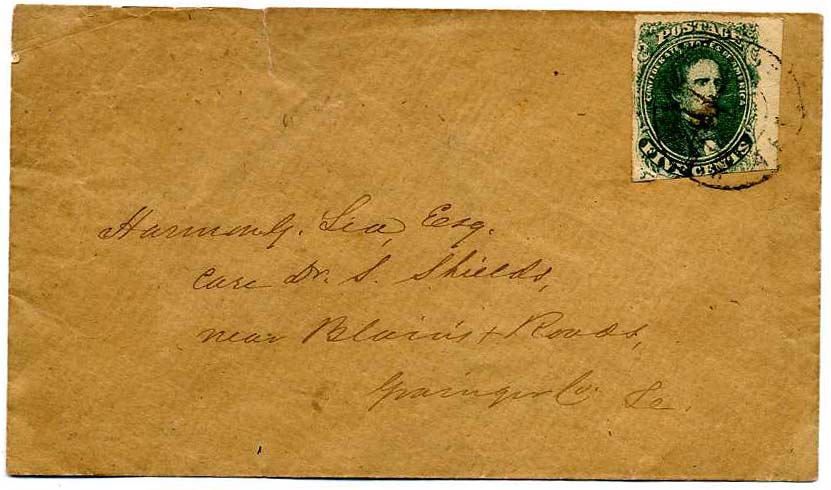 POSTAGE
CONFEDERATE STATES OF AMERICA
FIVE CENTS
Harmon G. Lea, Esq.
care Dr. S. Shields,
near Blain's + Roads,
Grainger Co. Te.